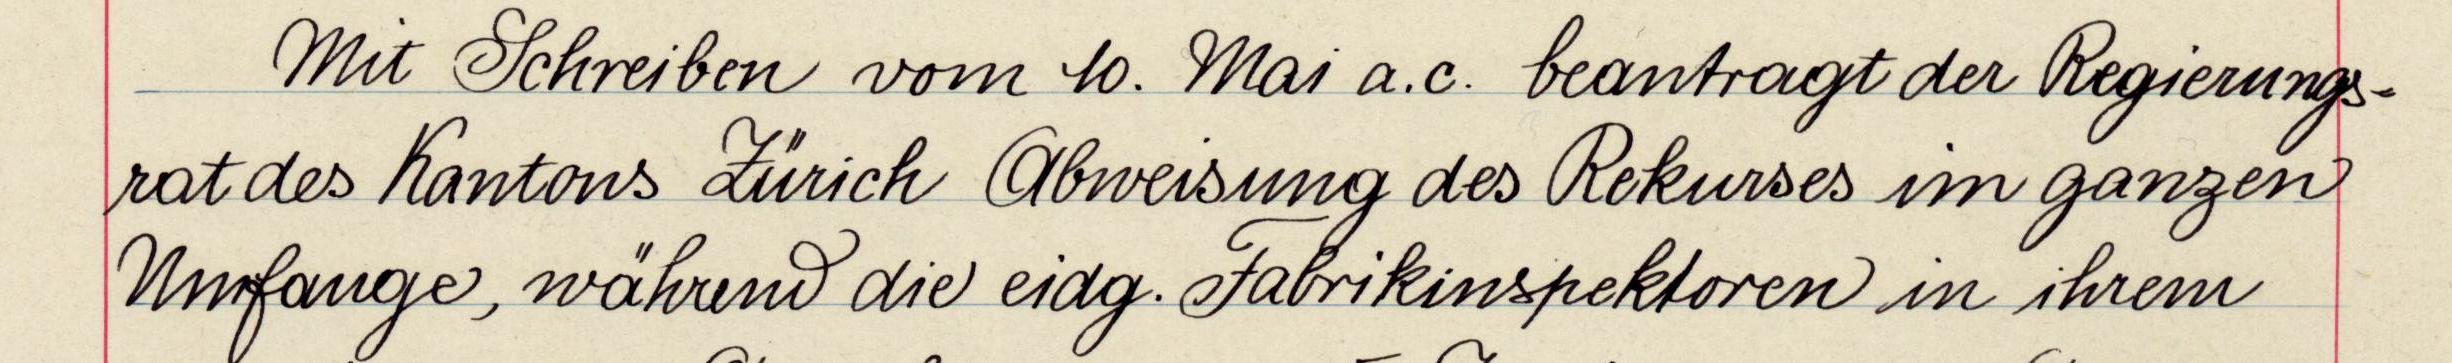 Mit Schreiben vom 10. Mai a.c. beantragt der Regierungs-
rat des Kantons Zürich Abweisung des Rekurses im ganzen
Umfange, während die eidg. Fabrikinspektoren in ihrem